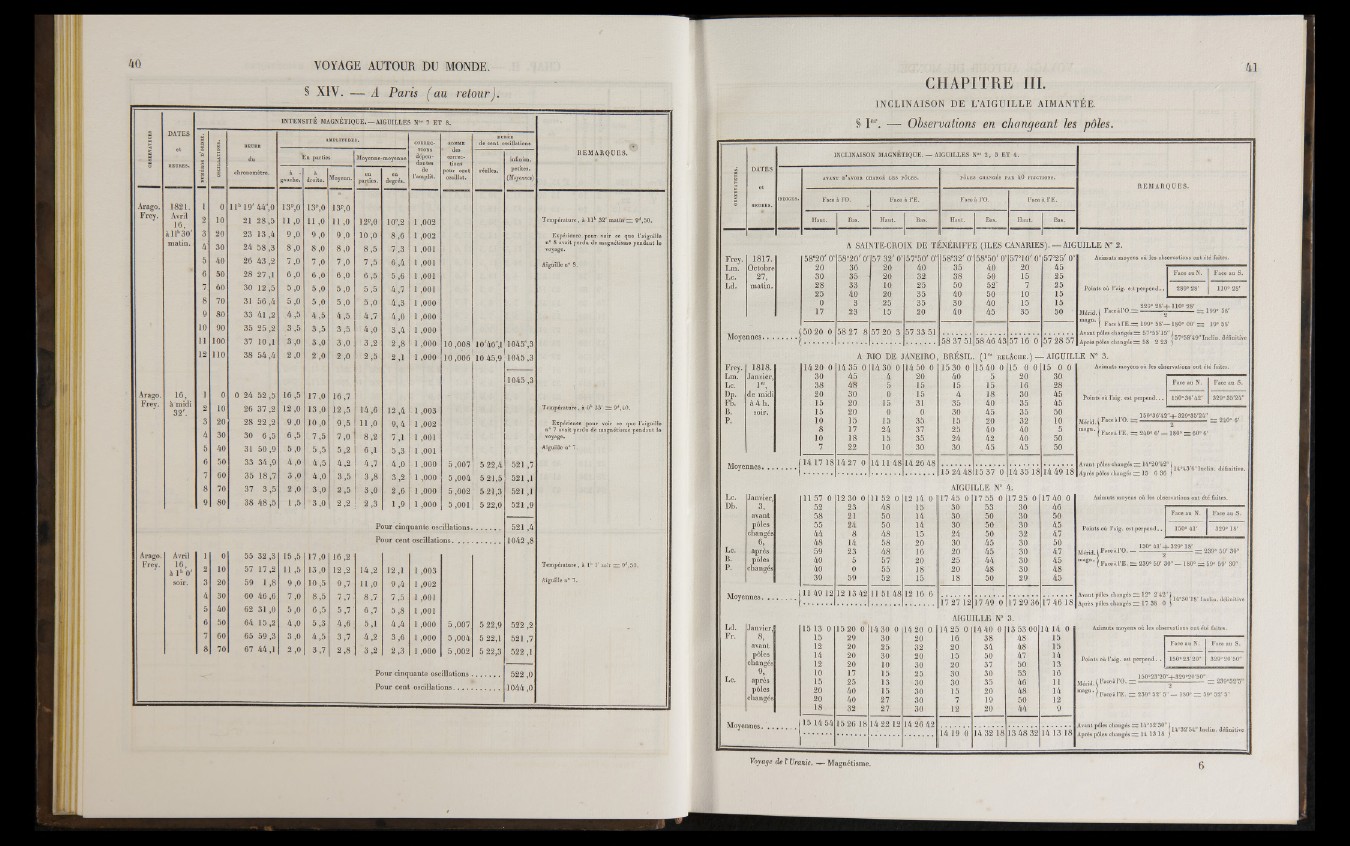 40
VOYAGE AUTOUR DU MONDE.
§ XIV. — A Paris (au retour).
INTENSITÉ MAGNÉTIQUE. — AIGUILLES Nos 7 ET 8.
OBSERVATEURS
DATES et HEURES.
HEURE du chronomètre.
AMPLITUDES.
En parties
Moyenne-moyenne
à gauche.
à droite.
Moyen.
en parties.
en degrés.
SOMME des corrections pour cent oscillat.
DURÉE de cent oscillations
réelles.
infinim. petites. (Moyennes)
REMARQUES.
Arago. Frey.
1821. Avril 16, à 11h 30' matin.
1 0 11h 19' 44",0 13p,0 13p,0 13p,0
2 10 21 28,5 11,0 11,0 11,0 12p,0 10°,2 1,002
3 20 23 13,4 9,0 9,0 9,0 10,0 8,6 1,002
4 30 24 58,3 8,0 8,0 8,0 8,5 7,3 1,001
5 40 26 43,2 7,0 7,0 7,0 7,5 6,4 1,001
6 50 28 27,1 6,0 6,0 6,0 6,5 5,6 1,001
7 60 30 12,5 5,0 5,0 5,0 5,5 4,7 1,001
8 70 31 56,4 5,0 5,0 5,0 5,0 4,3 1,000
9 80 33 41,2 4,5 4,5 4,5 4,7 4,0 1,000
10 90 35 25,2 3,5 3,5 3,5 4,0 3,4 1,000
11 100 37 10,1 3,0 3,0 3,0 3,2 2,8 1,000 10,008 10'45",1 1045",3
12 110 38 54,4 2,0 2,0 2,0 2,5 2,1 1,000 10,006 10 45,9 1045,3
1045,3
Température, à 11h 32' matin = 9°,50.
Expérience pour voir ce que l'aiguille n° 8 avait perdu de magnétisme pendant le voyage.
Aiguille n° 8.
Arago. Frey.
16, à midi 32'.
1 0 0 24 52,5 16,5 17,0 16,7
2 10 26 37,2 12,0 13,0 12,5 14,6 12,4 1,003
3 20 28 22,2 9,0 10,0 9,5 11,0 9,4 1,002
4 30 30 6,5 6,5 7,5 7,0 8,2 7,1 1,001
5 40 31 50,9 5,0 5,5 5,2 6,1 5,3 1,001
6 50 33 34,9 4,0 4,5 4,2 4,7 4,0 1,000 5,007 5 22,4 521,7
7 60 35 18,7 3,0 4,0 3,5 3,8 3,2 1,000 5,004 5 21,5 521,1
8 70 37 3,5 2,0 3,0 2,5 3,0 2,6 1,000 5,002 5 21,3 521,1
9 80 38 48,5 1,5 3,0 2,2 2,3 1,9 1,000 5,001 5 22,0 521,9
Pour cinquante oscillations....... 521,4
Pour cent oscillations........... 1042,8
Expérience pour voir ce que l'aiguille n° 7 avait perdu de magnétisme pendant le voyage.
Aiguille n° 7.
Arago. Frey.
Avril 16, à 1h 0' soir.
1 0 55 32,3 15,5 17,0 16,2
2 10 57 17,2 11,5 13,0 12,2 14,2 12,1 1,003
3 20 59 1,8 9,0 10,5 9,7 11,0 9,4 1,002
4 30 60 46,6 7,0 8,5 7,7 8,7 7,5 1,001
5 40 62 31,0 5,0 6,5 5,7 6,7 5,8 1,001
6 50 64 15,2 4,0 5,3 4,6 5,1 4,4 1,000 5,007 5 22,9 522,2
7 60 65 59,3 3,0 4,5 3,7 4,2 3,6 1,000 5,004 5 22,1 521,7
8 70 67 44,1 2,0 3,7 2,8 3,2 2,3 1,000 5,002 5 22,3 522,1
Pour cinquante oscillations....... 522,0
Pour cent oscillations........... 1044,0
Aiguille n° 7.
41
CHAPITRE III.
INCLINAISON DE L'AIGUILLE AIMANTÉE.
§ Ier. — Observations en changeant les pôles.
INCLINAISON MAGNÉTIQUE. — AIGUILLES Nos 2, 3 ET 4.
DATES et HEURES.
AVANT D'AVOIR CHANGÉ LES PÔLES.
PÔLES CHANGÉS PAR 40 FRICTIONS.
Face à l'O. Face à l'E. Face à l'O. Face à l'E.
Haut. Bas. Haut. Bas. Haut. Bas. Haut. Bas.
REMARQUES.
A SAINTE-CROIX DE TÉNÉRIFFE (ILES CANARIES). — AIGUILLE N° 2.
Frey. Lm. Lc. Ld.
1817. Octobre 27, matin.
58°20' 0" 58°20' 0" 57 32' 0" 57°50' 0" 58°32' 0" 58°50' 0" 57°10' 0" 57°25' 0"
20 30 20 40 35 40 20 45
30 35 20 32 38 50 15 25
28 33 10 25 50 52 7 25
25 40 20 35 40 50 10 15
0 3 25 35 30 40 15 15
17 23 15 20 40 45 35 50
Moyennes.
50 20 0 58 27 8 57 20 3 57 35 51
58 37 51 58 46 43 57 16 0 57 28 57
Azimuts moyens où les observations ont été faites.
Face au N. Face au S.
Points où l'aig. est perpend... 289° 28' 110° 28'
A RIO DE JANEIRO, BRÉSIL. (1re RELÂCHE.) — AIGUILLE N° 3.
Frey. Lm. Lc. Dp. Fb. B. P.
1818. Janvier, 1er, de midi à 4 h. soir.
14 20 0 14 35 0 14 30 0 14 50 0 15 30 0 15 40 0 15 0 0 15 0 0
30 45 4 20 40 5 20 30
38 48 5 15 15 15 16 28
20 30 0 15 4 18 30 45
15 20 15 31 35 40 35 45
15 20 0 0 30 45 35 50
10 15 15 35 15 20 32 10
8 17 24 37 25 40 40 5
10 18 15 35 24 42 40 50
7 22 10 30 30 45 45 50
Moyennes.
14 17 18 14 27 0 14 11 48 14 26 48
15 24 48 15 37 0 14 35 18 14 49 18
Azimuts moyens où les observations ont été faites.
Face au N. Face au S.
Points où l'aig. est perpend... 150°36'42" 329°35'25"
AIGUILLE N° 4.
Lc. Db. Lc. B. P.
Janvier, 3, avant pôles changés 6, après pôles changés
11 57 0 12 30 0 11 52 0 12 14 0 17 45 0 17 55 0 17 25 0 17 40 0
52 23 48 15 30 55 30 46
58 21 50 14 30 50 30 50
55 24 50 14 30 50 30 45
44 8 48 15 24 50 32 47
48 14 58 20 30 45 30 50
59 23 48 16 20 45 30 47
40 5 57 20 25 44 30 45
40 0 55 18 20 48 30 48
39 59 52 15 18 50 29 45
Moyennes.
11 49 12 12 13 42 11 51 48 12 16 6
17 27 12 17 49 0 17 29 36 17 46 18
Azimuts moyens où les observations ont été faites.
Face au N. Face au S.
Points où l'aig. est perpend... 150° 43' 329° 18'
AIGUILLE N° 3.
Ld. Fr. Lc.
Janvier, 8, avant pôles changés 9, après pôles changés
15 13 0 15 20 0 14 30 0 14 20 0 14 25 0 14 40 0 13 53 00 14 14 0
15 29 30 20 16 38 48 15
12 20 25 32 20 34 48 15
14 20 30 20 15 50 47 14
12 20 10 30 20 37 50 13
10 17 15 25 30 30 55 16
15 25 13 30 30 35 46 11
20 40 15 30 15 20 48 14
20 40 27 30 7 19 50 12
18 32 27 30 12 20 44 9
Moyennes.
15 14 54 15 26 18 14 22 12 14 26 42
14 19 0 14 32 18 13 48 32 14 13 18
Azimuts moyens où les observations ont été faites.
Face au N. Face au S.
Points où l'aig. est perpend... 150°23'20" 329°20'50"
Voyage de l'Uranie. — Magnétisme.
6